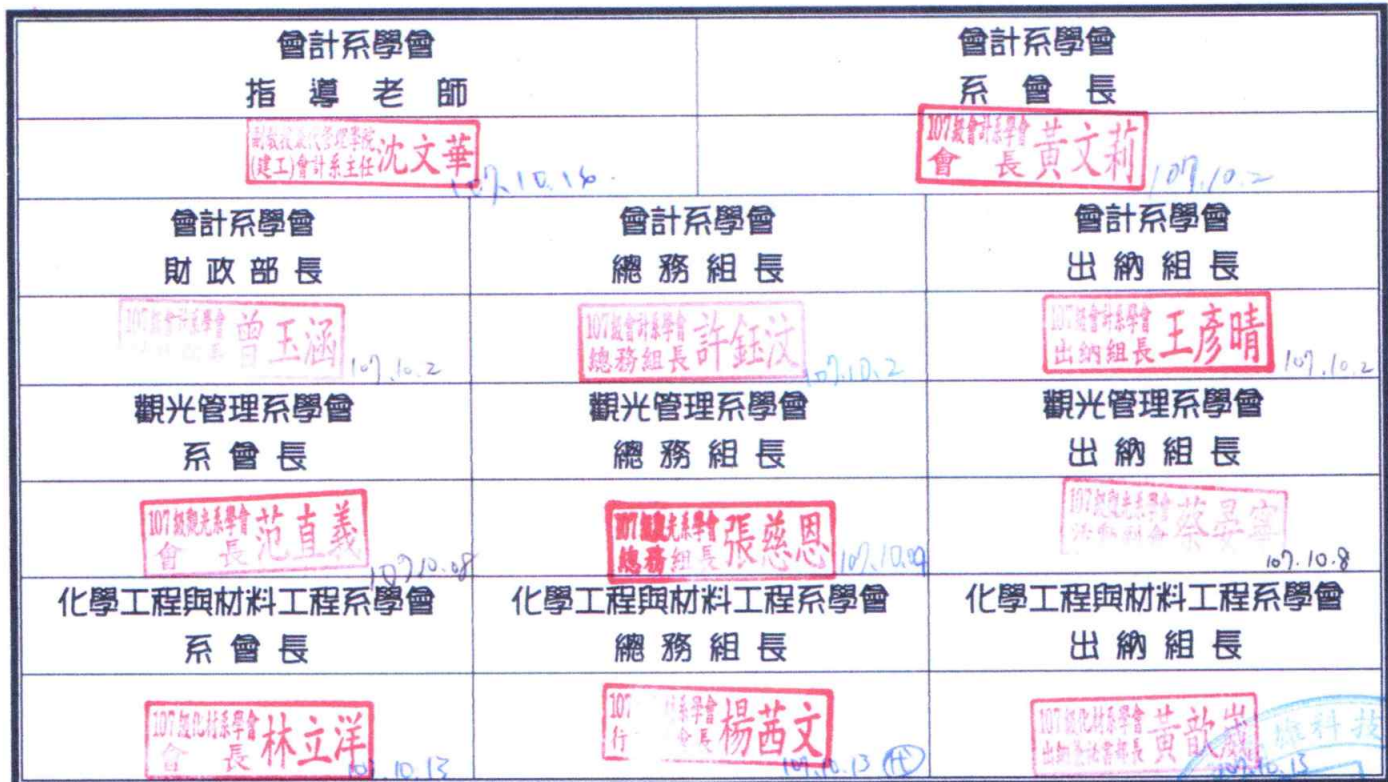 會計系學會
指導老師
會計系學會
系會長
副教授兼代管理學院
(建工)會計系主任 沈文華
107.10.16.
107級會計系學會
會長 黃文莉
107.10.2
會計系學會
財政部長
會計系學會
總務組長
會計系學會
出納組長
107級會計系學會
曾玉涵
107.10.2
107級會計系學會
總務組長 許鈺汶
107.10.2
107級會計系學會
出納組長 王彥晴
107.10.2
觀光管理系學會
系會長
觀光管理系學會
總務組長
觀光管理系學會
出納組長
107級觀光系學會
會長 范直義
107.10.08
107級觀光系學會
總務組長 張慈恩
107.10.09
107級觀光系學會
活動副會 蔡晏寧
107.10.8
化學工程與材料工程系學會
系會長
化學工程與材料工程系學會
總務組長
化學工程與材料工程系學會
出納組長
107級化材系學會
會長 林立洋
107.10.13
107 材系學會
行 會長 楊茜文
107.10.13 代
107級化材系學會
出納 書部長 黃歆崴
107.10.13
雄科技